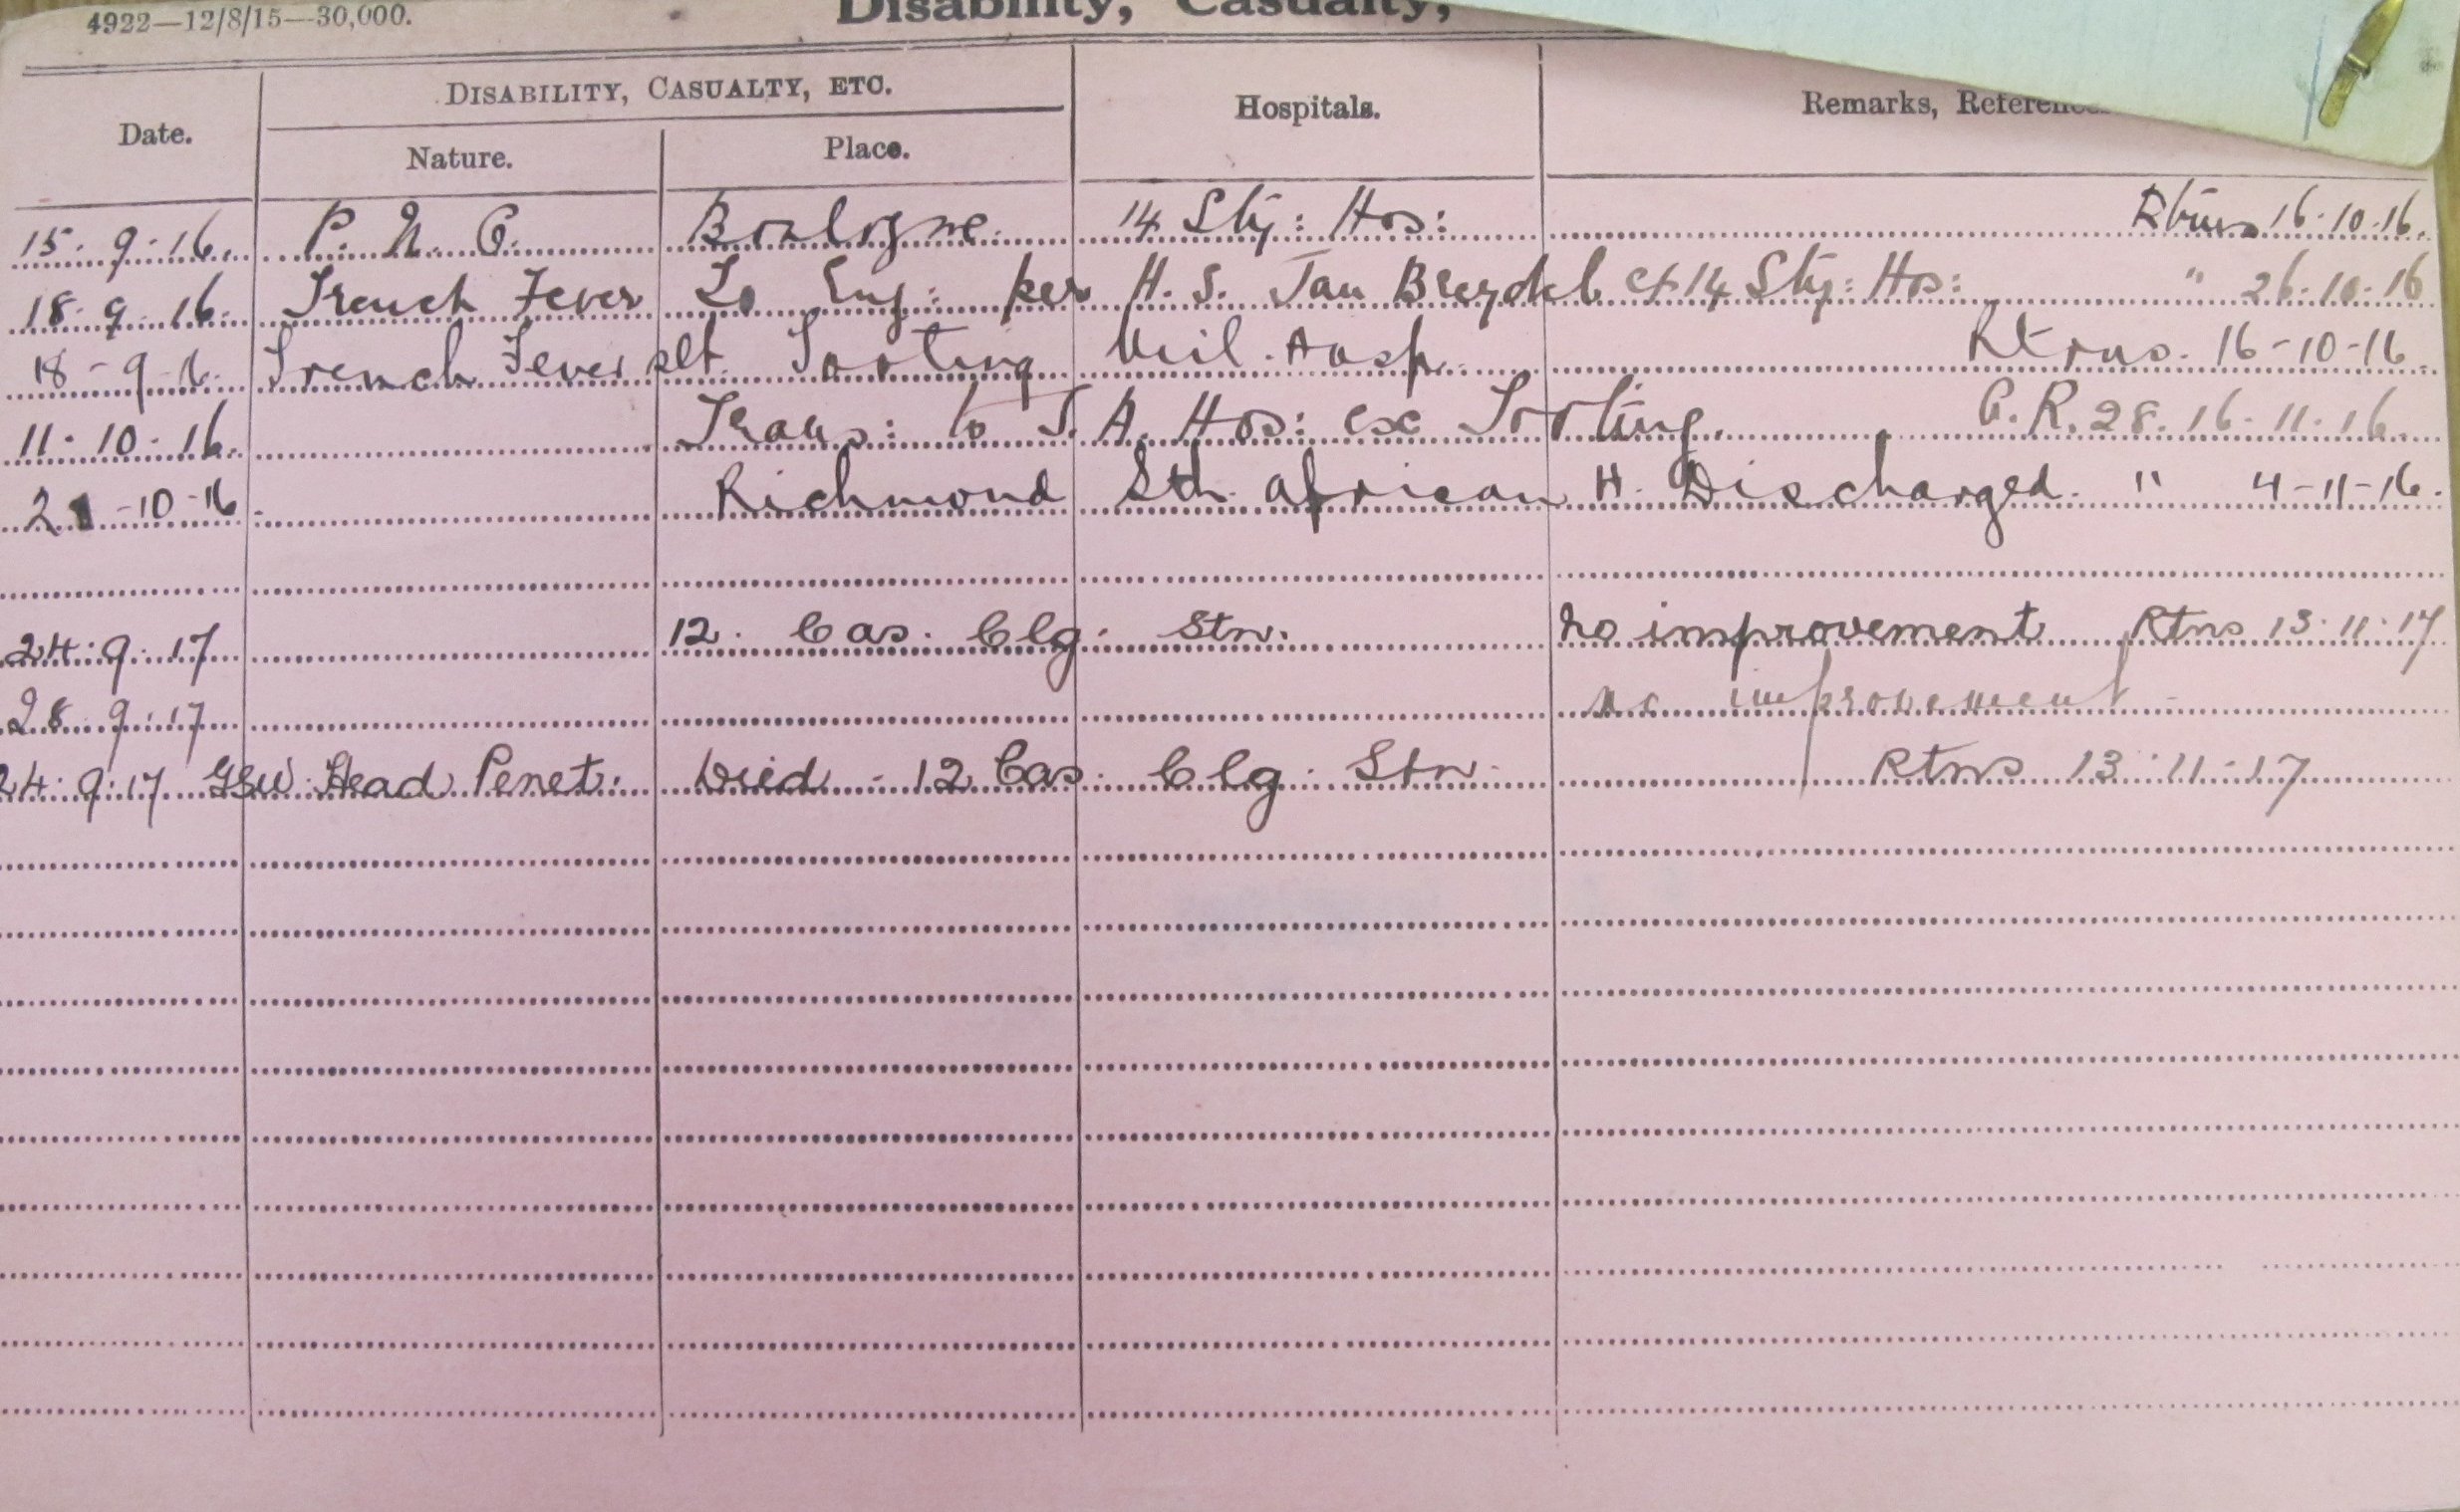 4922—12/8/15—30,000.
Disability, Casualty,
DISABILITY, CASUALTY, ETC.
Date. Nature. Place. Hospitals. Remarks,
15. 9. 16. P. U. O. Boulogne. 14 Sty: Hos: Rtns 16.10.16.
18. 9. 16. Trench Fever To Eng: per H. S. Jan Breydel ex 14 Sty: Hos: " 26.10.16
18-9-16. Trench Fever slt. Tooting Mil. Hosp. Rtrns. 16-10-16.
11. 10. 16. Trans: to S. A. Hos: ex Tooting. C. R. 28. 16.11.16.
21-10-16. Richmond Sth. african H. Discharged. " 4-11-16.
24. 9. 17 12. Cas. Clg. Stn. no improvement Rtns 13.11.17
28. 9. 17 no improvement
24. 9. 17 GSW Head Penet. Died - 12 Cas. Clg. Stn. Rtns 13.11.17